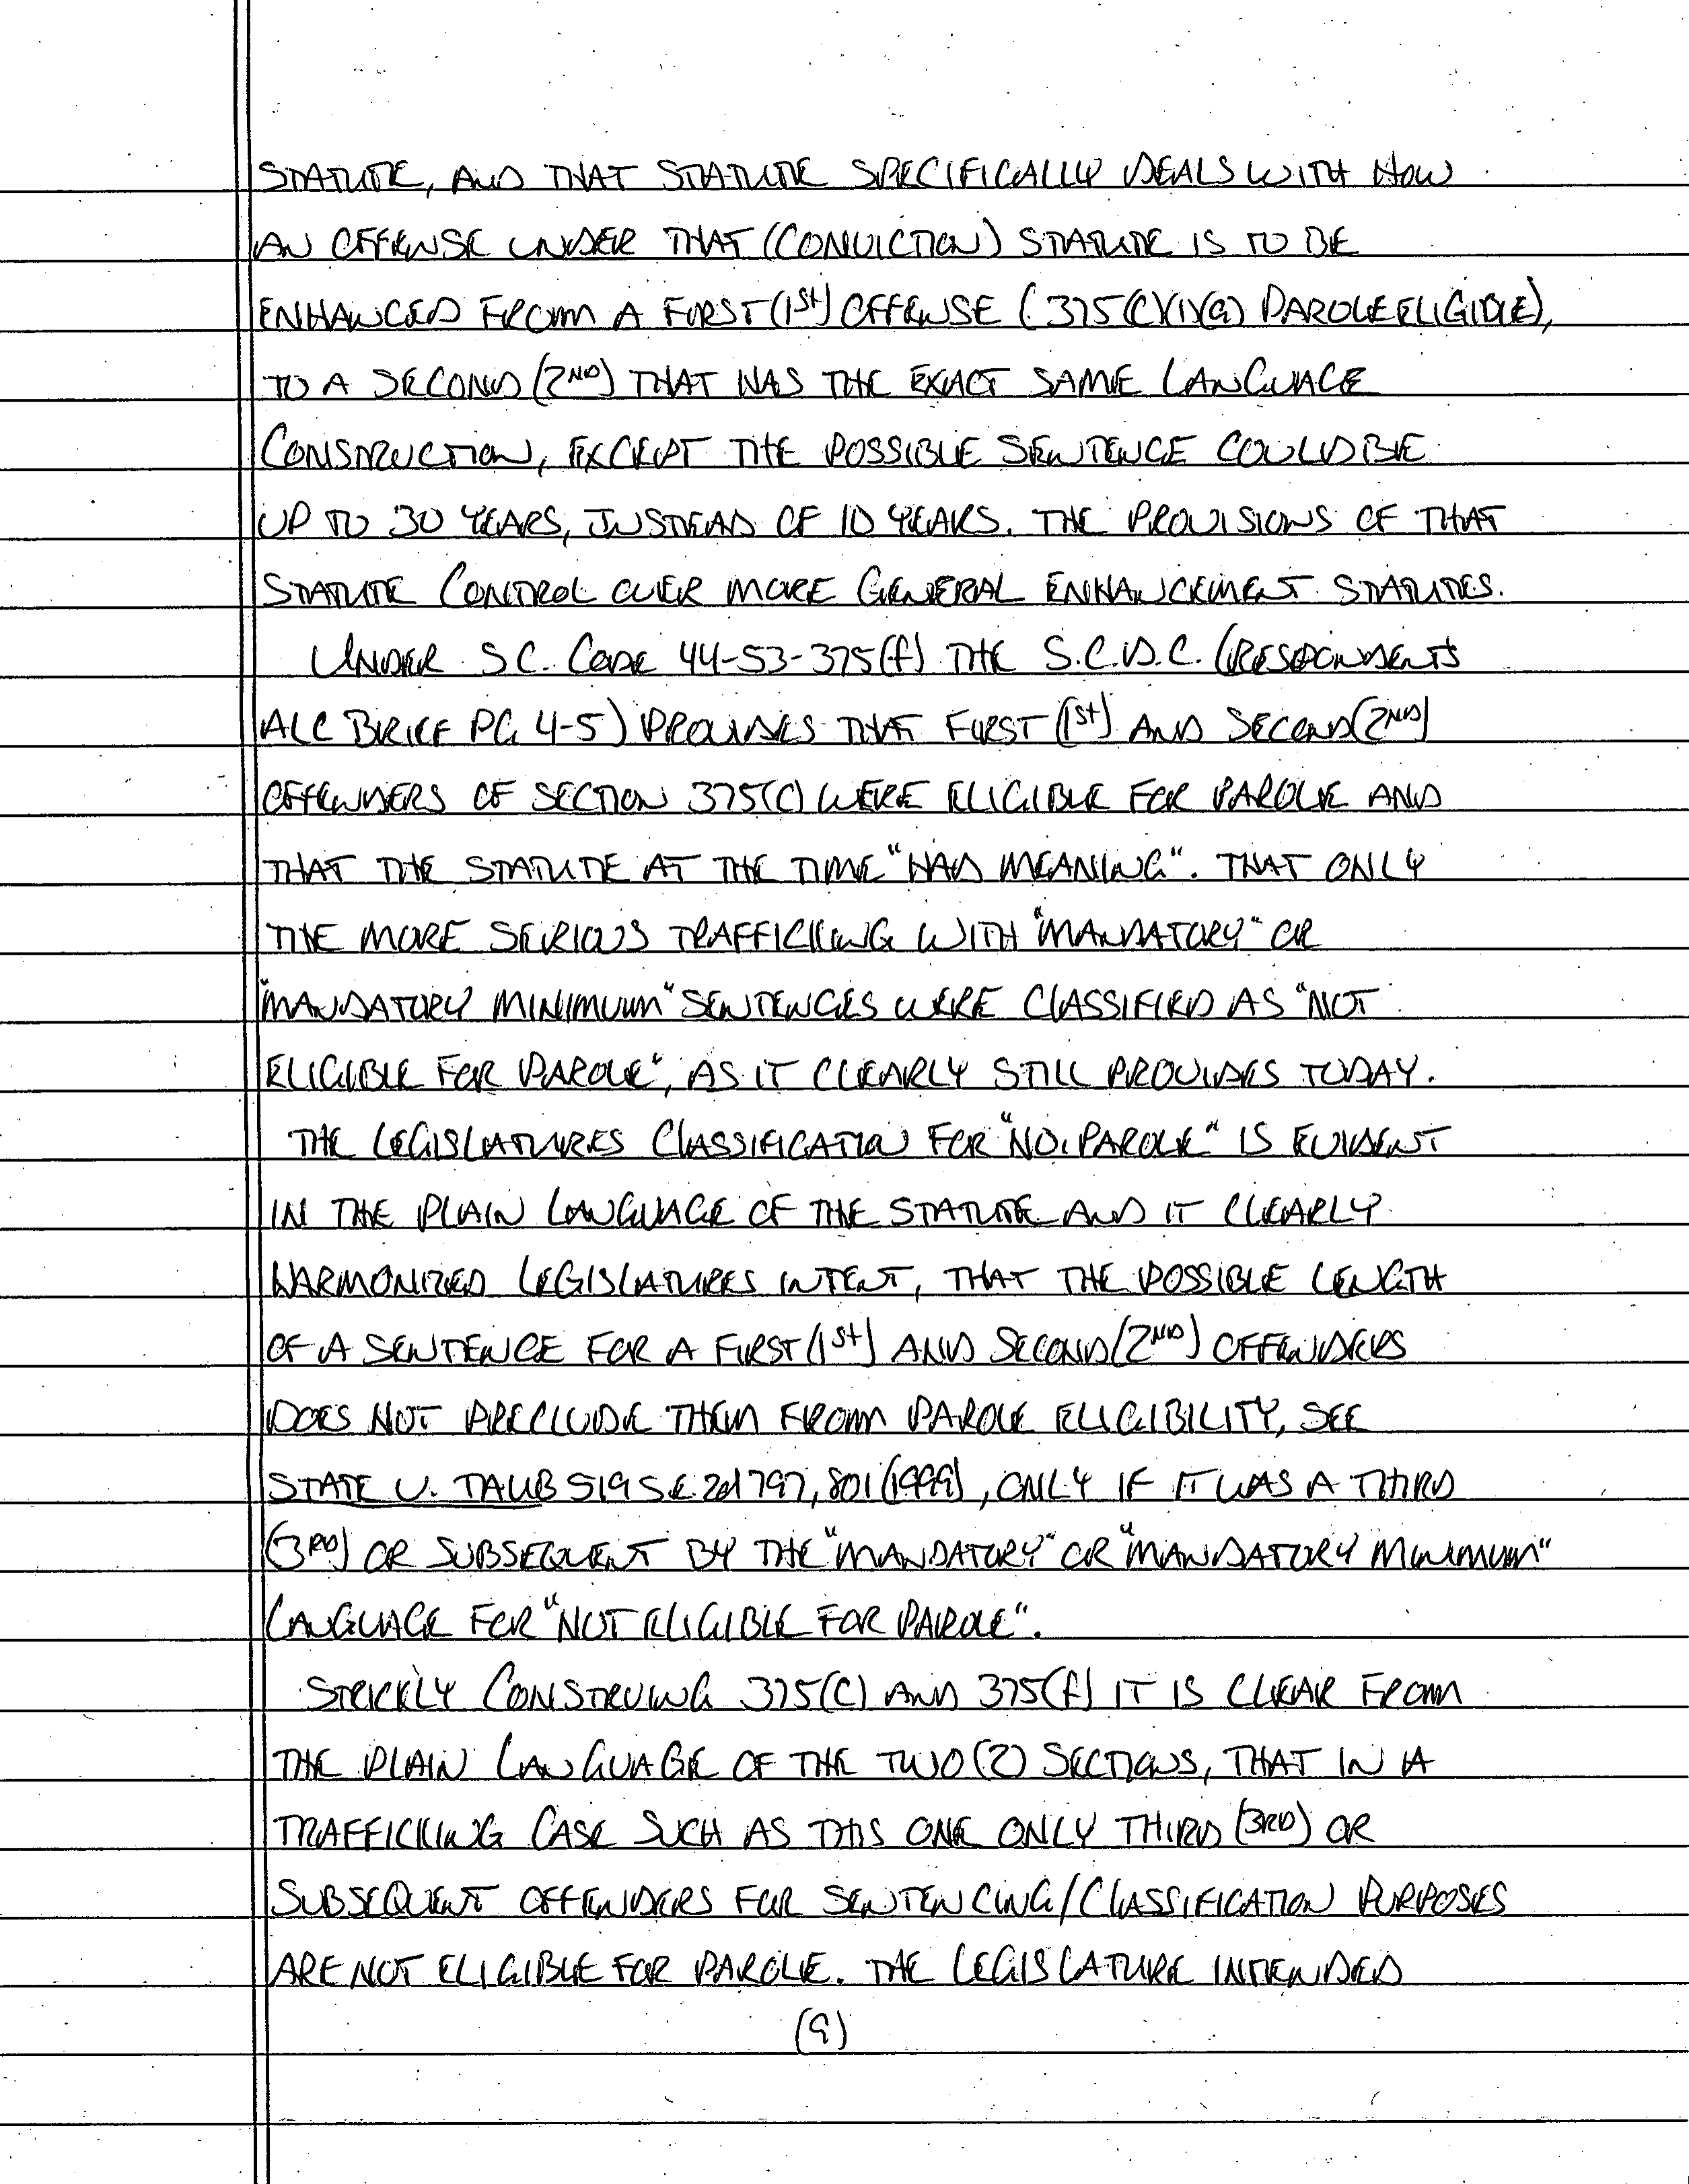 STATUTE, AND THAT STATUTE SPECIFICALLY DEALS WITH HOW
AN OFFENSE UNDER THAT (CONVICTION) STATUTE IS TO BE
ENHANCED FROM A FIRST (1St) OFFENSE (375(C)(1)(a) PAROLE ELIGIBLE),
TO A SECOND (2ND) THAT HAS THE EXACT SAME LANGUAGE
CONSTRUCTION, EXCEPT THE POSSIBLE SENTENCE COULD BE
UP TO 30 YEARS, INSTEAD OF 10 YEARS. THE PROVISIONS OF THAT
STATUTE CONTROL OVER MORE GENERAL ENHANCEMENT STATUTES.
UNDER S.C. CODE 44-53-375(f) THE S.C.D.C. (RESPONDENTS
ALC BRIEF PG 4-5) PROVIDES THAT FIRST (1St) AND SECOND (2ND)
OFFENDERS OF SECTION 375(C) WERE ELIGIBLE FOR PAROLE AND
THAT THE STATUTE AT THE TIME "HAD MEANING". THAT ONLY
THE MORE SERIOUS TRAFFICKING WITH "MANDATORY" OR
"MANDATORY MINIMUM" SENTENCES WERE CLASSIFIED AS "NOT
ELIGIBLE FOR PAROLE", AS IT CLEARLY STILL PROVIDES TODAY.
THE LEGISLATURES CLASSIFICATION FOR "NO. PAROLE" IS EVIDENT
IN THE PLAIN LANGUAGE OF THE STATUTE AND IT CLEARLY
HARMONIZED LEGISLATURES INTENT, THAT THE POSSIBLE LENGTH
OF A SENTENCE FOR A FIRST (1St) AND SECOND (2ND) OFFENDERS
DOES NOT PRECLUDE THEM FROM PAROLE ELIGIBILITY, SEE
STATE V. TAUB 519 S.E.2d 797, 801 (1999), ONLY IF IT WAS A THIRD
(3RD) OR SUBSEQUENT BY THE "MANDATORY" OR "MANDATORY MINIMUM"
LANGUAGE FOR "NOT ELIGIBLE FOR PAROLE".
STRICKLY CONSTRUING 375(C) AND 375(f) IT IS CLEAR FROM
THE PLAIN LANGUAGE OF THE TWO (2) SECTIONS, THAT IN A
TRAFFICKING CASE SUCH AS THIS ONE ONLY THIRD (3RD) OR
SUBSEQUENT OFFENDERS FOR SENTENCING/CLASSIFICATION PURPOSES
ARE NOT ELIGIBLE FOR PAROLE. THE LEGISLATURE INTENDED
(9)